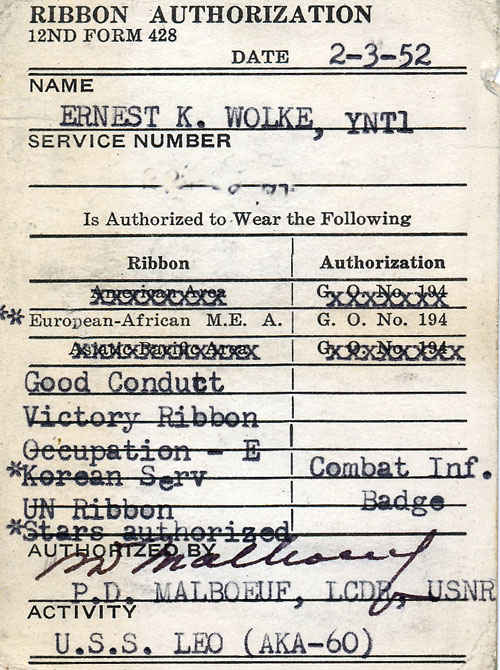 RIBBON AUTHORIZATION
12ND FORM 428
DATE 2-3-52
NAME
ERNEST K. WOLKE, YNT1
SERVICE NUMBER
Is Authorized to Wear the Following
Ribbon Authorization
American Area G. O. No. 194
**European-African M.E. A. G. O. No. 194
Asiatic-Pacific Area G. O. No. 194
Good Conduct
Victory Ribbon
Occupation - E
*Korean Serv Combat Inf.
UN Ribbon Badge
*Stars authorized
AUTHORIZED BY
P.D. MALBOEUF, LCDR, USNR
ACTIVITY
U.S.S. LEO (AKA-60)